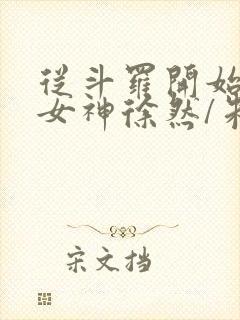 從斗羅開始
女神徐然/
宋文挡